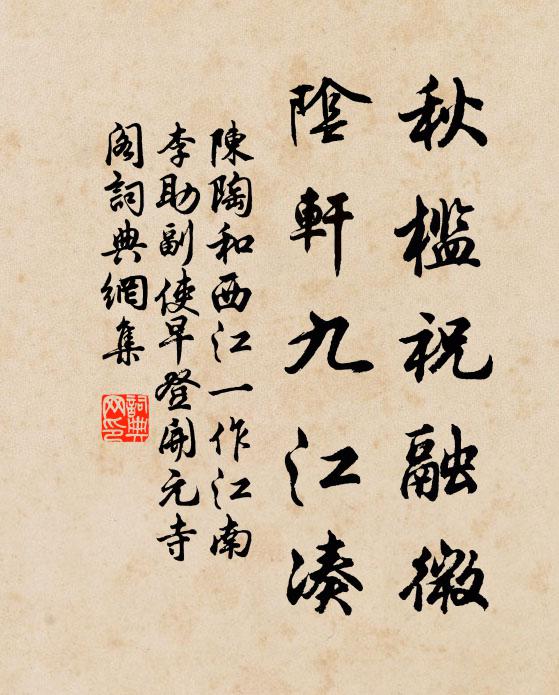 秋檻祝融微
陰軒九江湊
陳陶和西江一作江南
李助副使早登開元寺
閣詞典網集
詞典
网印